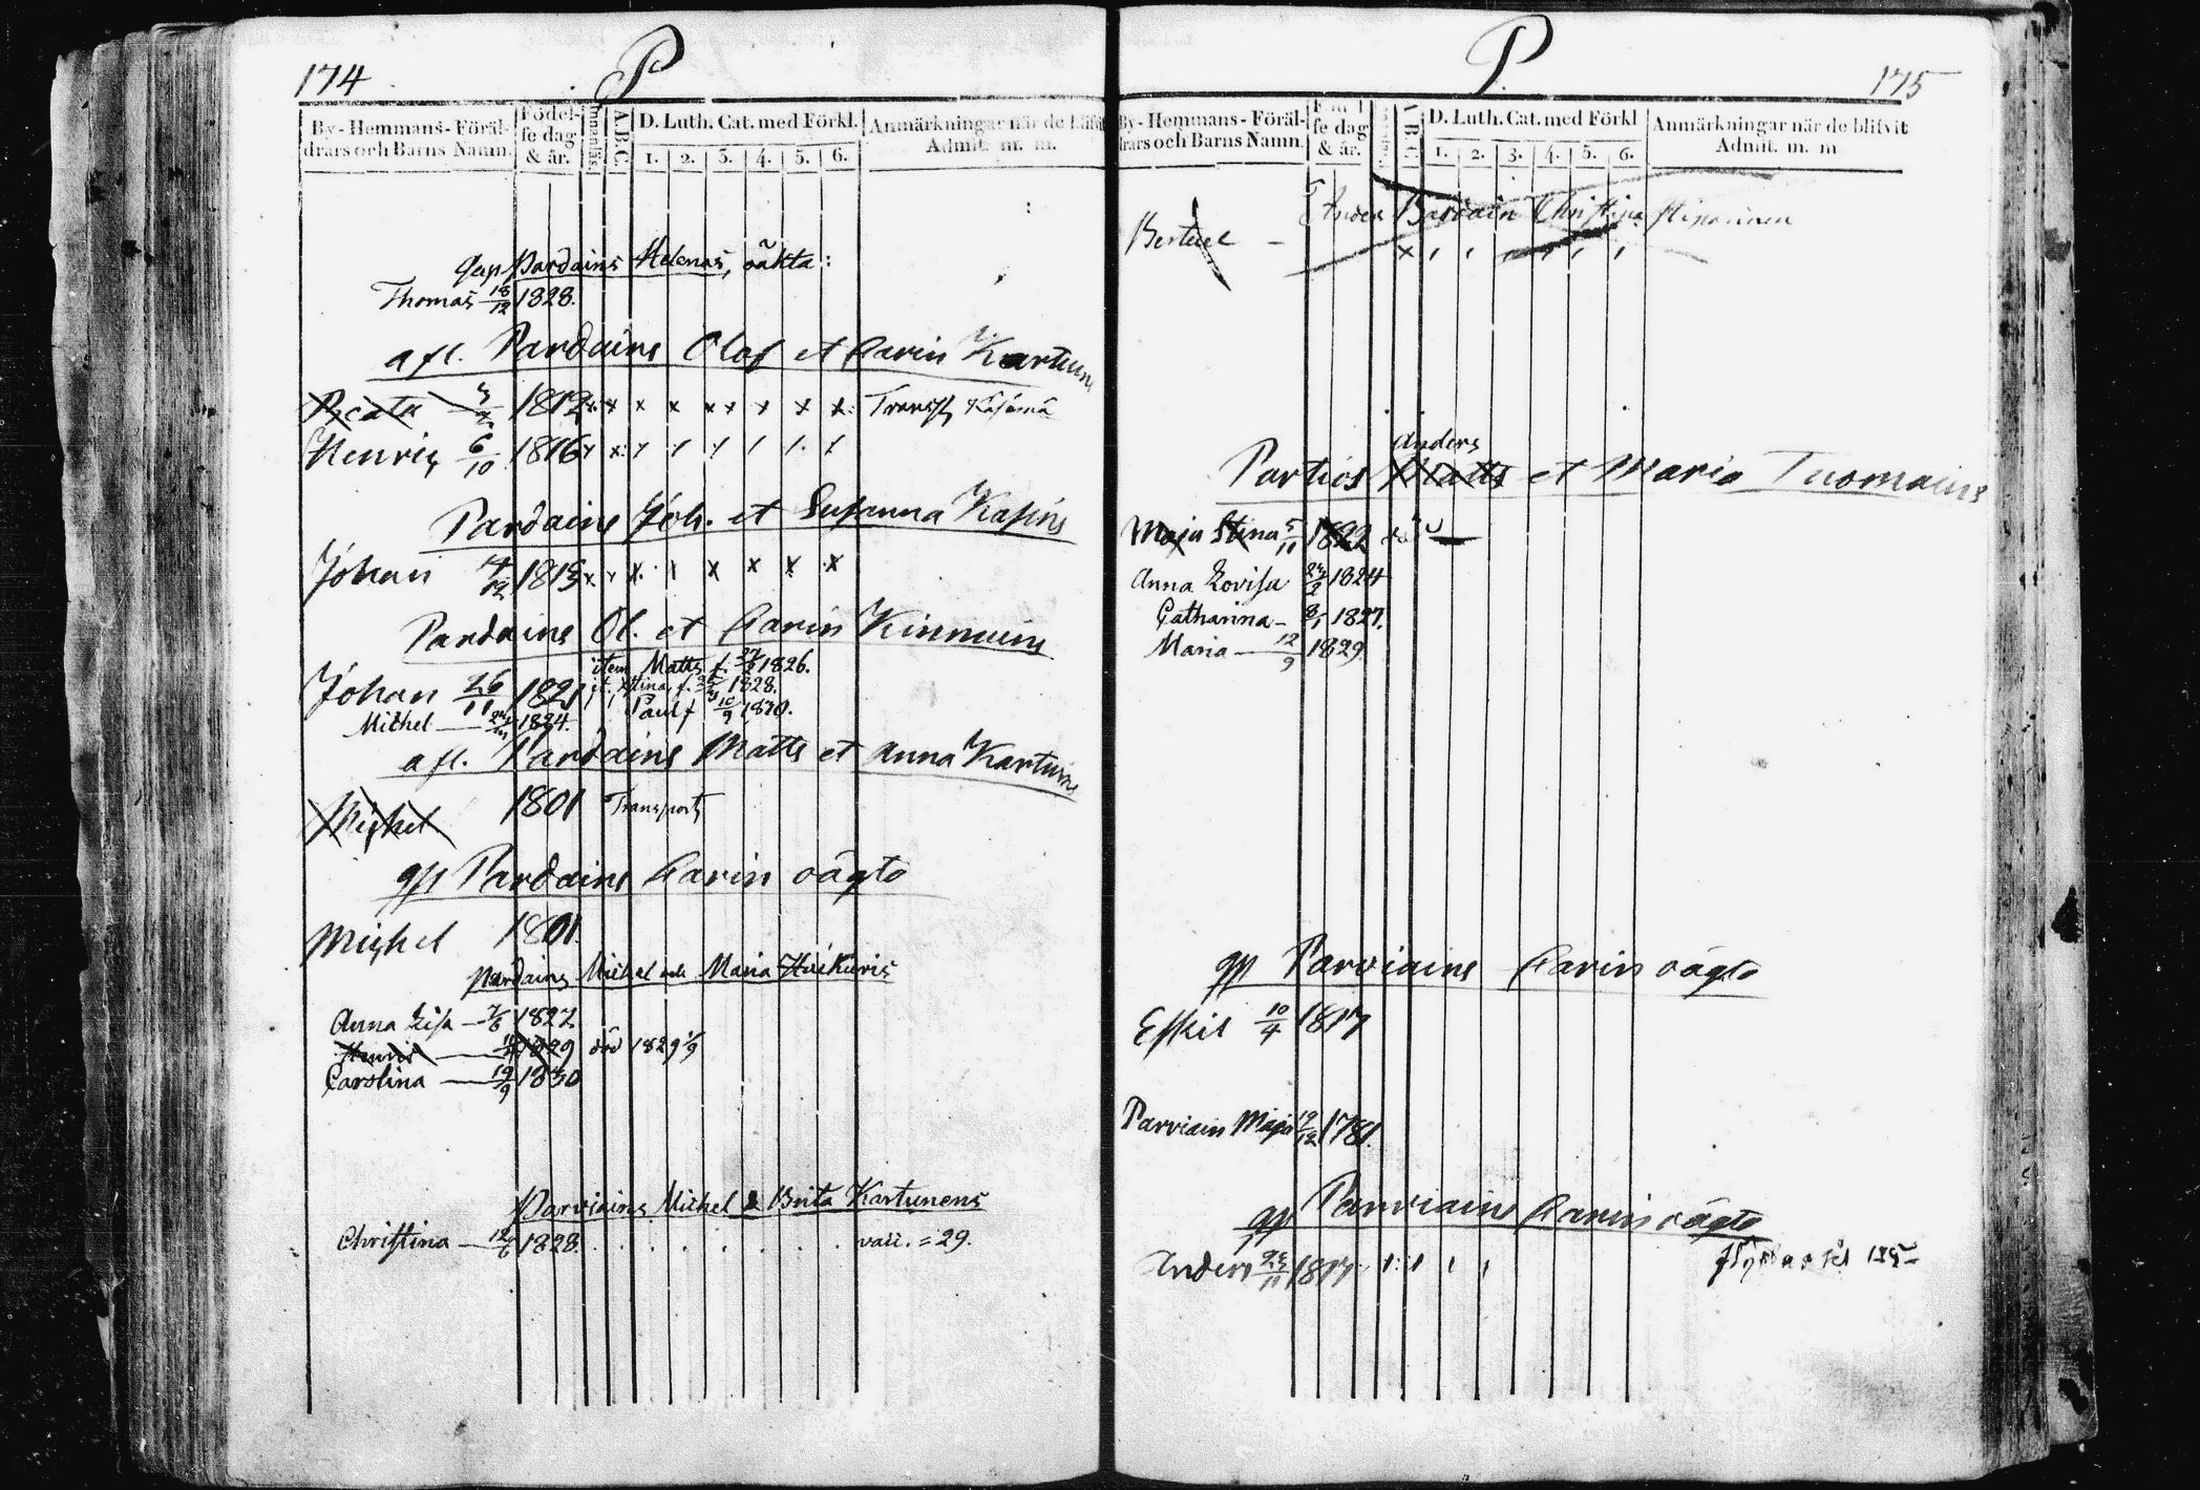 174 P
By-Hemmans-Föräl-
drars och Barns Namn.
Födel-
se dag
& år.
A.B.C.
D. Luth. Cat. med Förkl.
1. 2. 3. 4. 5. 6.
Anmärkningar när de
Admit. m. m.
Pardains Helenas, oäkta:
Thomas 18/12 1828.
afl. Pardains Olof et Carin Kartun
1812 x x x x x x x x x Transp
Henric 6/10 1816
Pardains Joh. et Susanna Kasins
Johan 1815 x x x 1 x x x x
Pardains Ol. et Carin Kinnuins
item Matts f. 1826.
Johan 26/11 1821 it. Stina f. 1828.
Paul f 10/9 1830.
Michel 1824.
afl. Pardains Matts et Anna Kartuns
Michel 1801 Transport
Pardains Carin oägto
Michel 1801.
Pardains Michel och Maria
Anna Lisa 7/6 1827
Henric 1829 död 1829
Carolina 19/9 1830
Parviains Michel & Brita Kartunens
Christina 12/6 1828. vacc. = 29.
P. 175
By-Hemmans-Föräl-
drars och Barns Namn.
se dag
& år.
D. Luth. Cat. med Förkl
1. 2. 3. 4. 5. 6.
Anmärkningar när de blifvit
Admit. m. m
Anders Christina
Bertuel
Anders
Partios Matts et Maria Tuomains
Maja Stina 5/11 1822 död
Anna Lovisa 1824
Catharina 8/1 1827.
Maria 12/9 1829.
Parviains Carin oägto
Eskil 10/4 1817
Parviain Maja 19/12 1781.
Parviain Carin oägto
Anders 1817